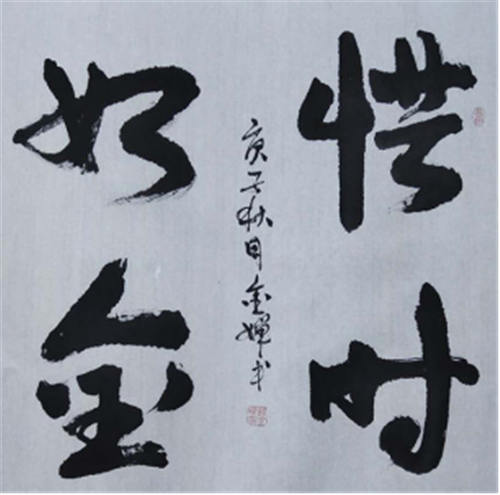 惜时
如金
庚子秋月金婵书